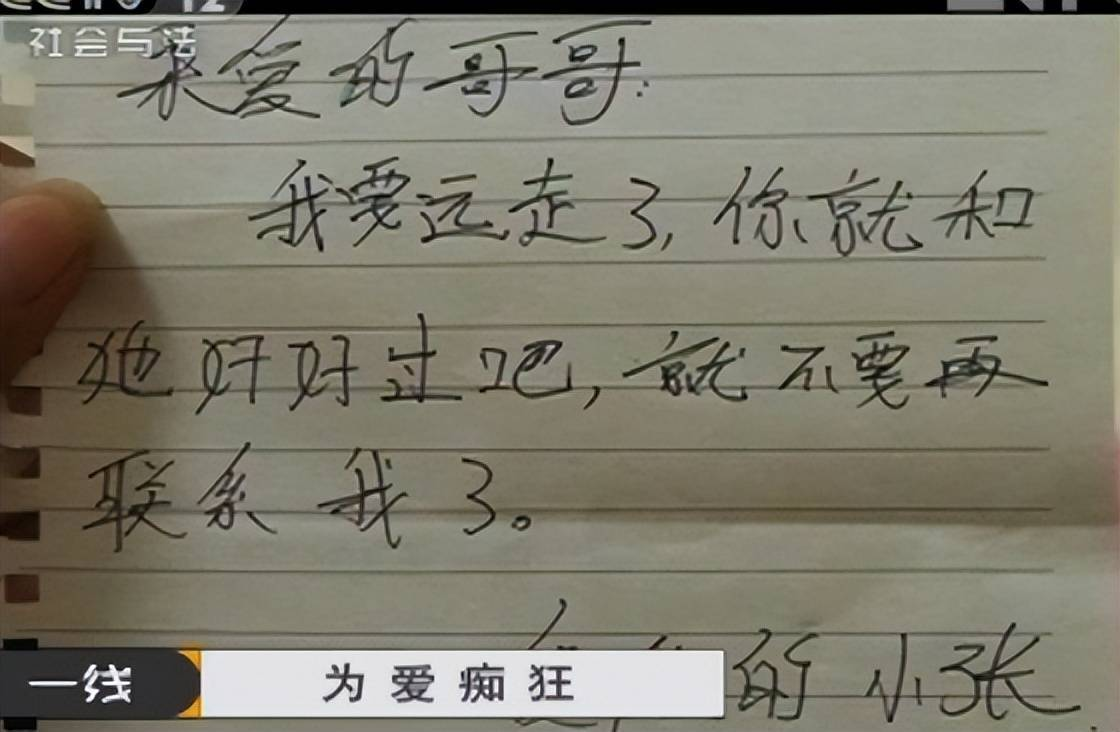 社会与法
亲爱的哥哥:
我要远走了,你就和
她好好过吧,就不要再
联系我了。
的小张
一线 为爱痴狂